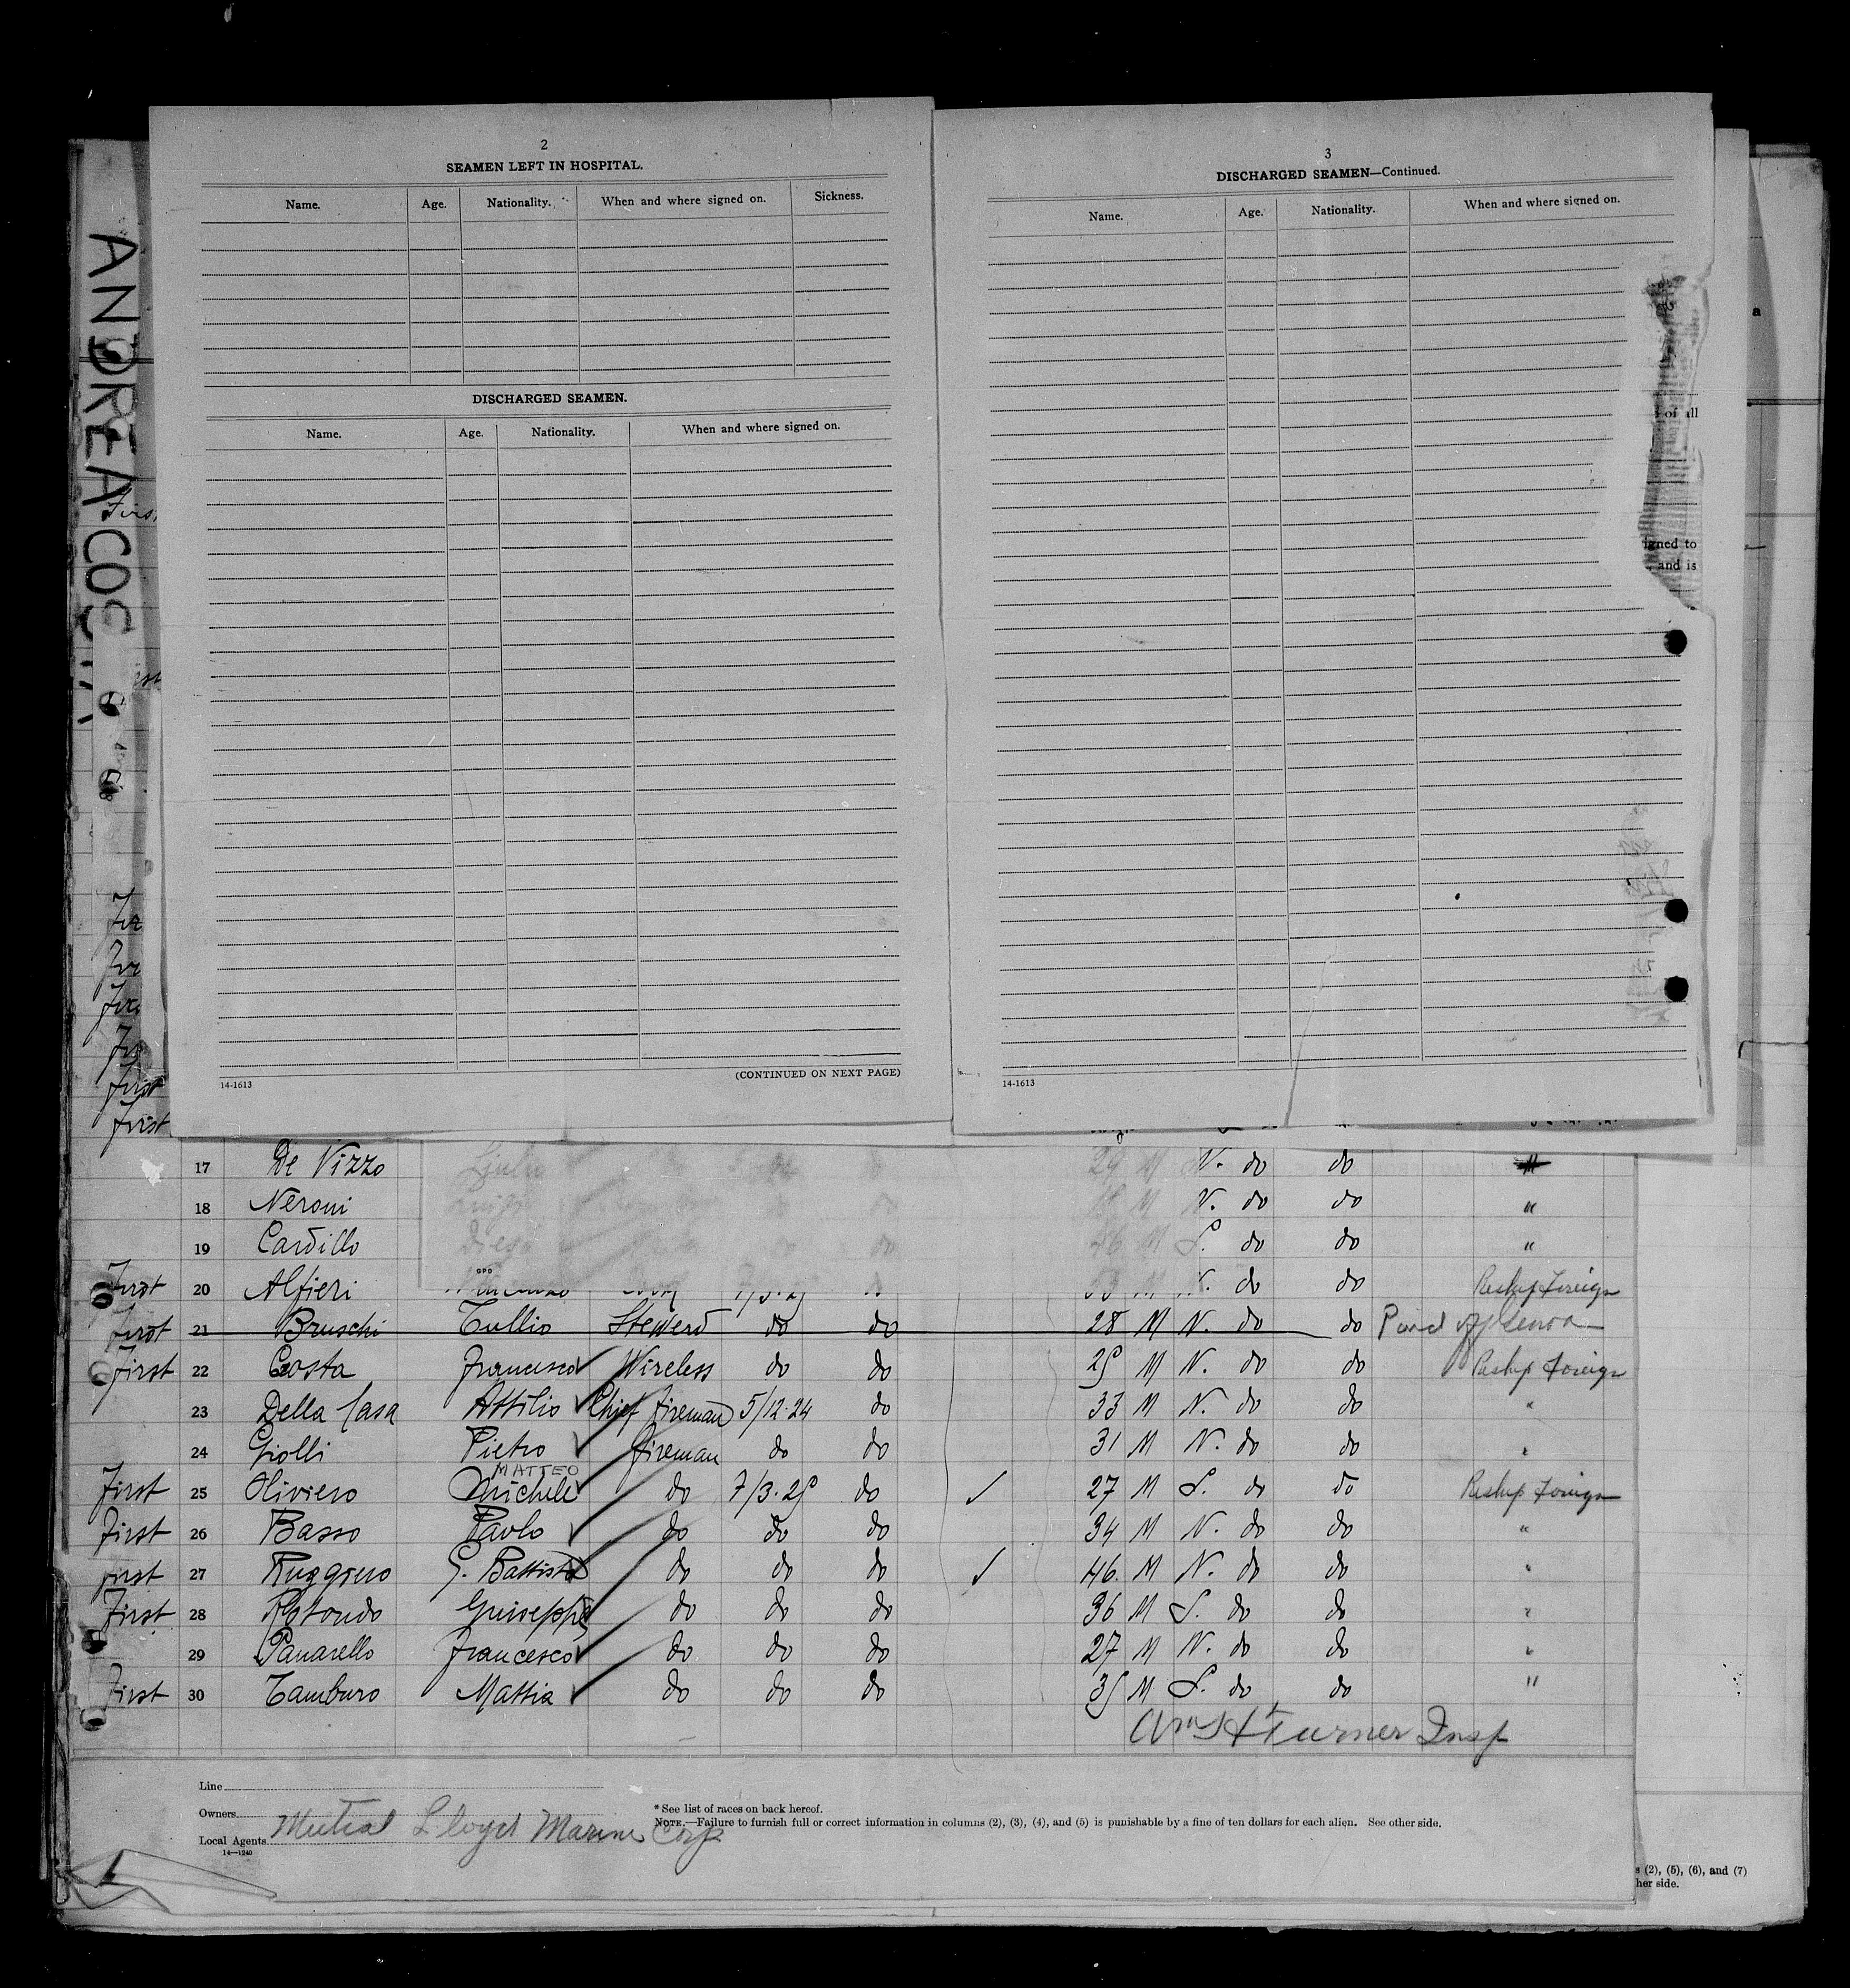 ANDREA COS
2
SEAMEN LEFT IN HOSPITAL.
Name. Age. Nationality. When and where signed on. Sickness.
DISCHARGED SEAMEN.
Name. Age. Nationality. When and where signed on.
14-1613 (CONTINUED ON NEXT PAGE)
3
DISCHARGED SEAMEN—Continued.
Name. Age. Nationality. When and where signed on.
14-1613
a
of all
igned to
and is
first
first
17 De Vizzo 29 M N. do do "
18 Neroni M N. do do "
19 Cardillo Diego 46 M S. do do "
GPO
First 20 Alfieri do do Reship Foreign
First 21 Bruschi Tullio Steward do do 28 M N. do do Paid off Genoa
First 22 Costa Francesco Wireless do do 25 M N. do do Reship Foreign
23 Della Casa Attilio Chief fireman 5/12·24 do 33 M N. do do "
24 Giolli Pietro fireman do do 31 M N. do do "
MATTEO
First 25 Oliviero Michele do 7/3·25 do ✓ 27 M S. do do Reship Foreign
First 26 Basso Paolo do do do 34 M N. do do "
First 27 Ruggiero G. Battista do do do ✓ 46. M N. do do "
First 28 Rotondo Guiseppe do do do 36 M S. do do "
29 Panarello Francesco do do do 27 M N. do do "
First 30 Tamburo Mattia do do do 35 M S. do do "
Wm H Turner Insp
Line
Owners
Mutual Lloyd Marine Corp
Local Agents
14—1240
* See list of races on back hereof.
NOTE.—Failure to furnish full or correct information in columns (2), (3), (4), and (5) is punishable by a fine of ten dollars for each alien. See other side.
s (2), (5), (6), and (7)
her side.